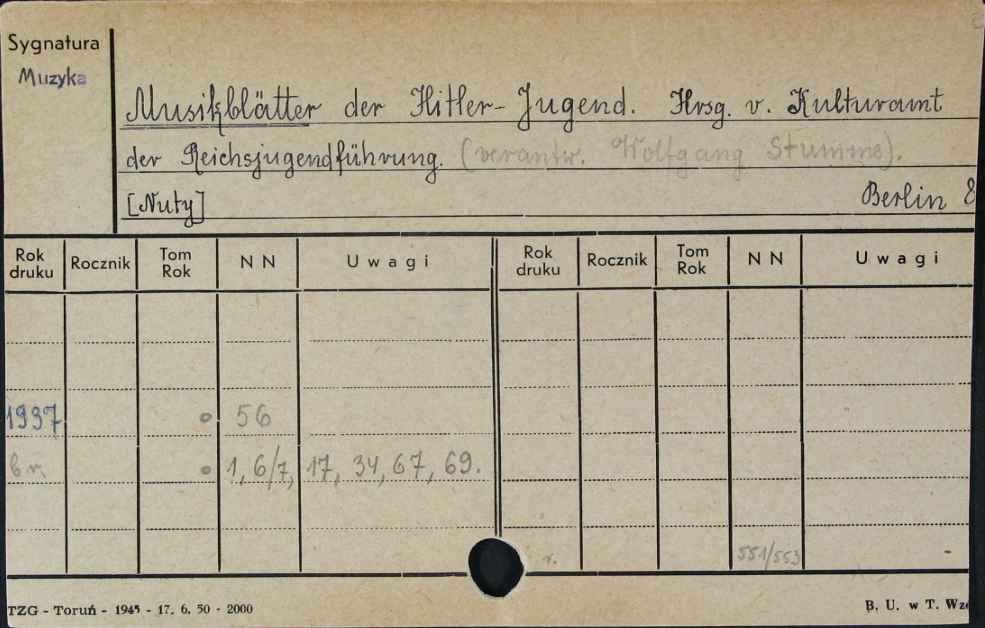 Sygnatura
Muzyka
Musikblätter der Hitler-Jugend. Hrsg. v. Kulturamt
der Reichsjugendführung. (verantw. Wolfgang Stumme).
[Nuty] Berlin
Rok druku Rocznik Tom Rok NN Uwagi Rok druku Rocznik Tom Rok NN Uwagi
1937 o 56
b.r. o 1, 6/7, 17, 34, 67, 69.
551/553 -
TZG - Toruń - 1945 - 17. 6. 50 - 2000 B. U. w T. Wz